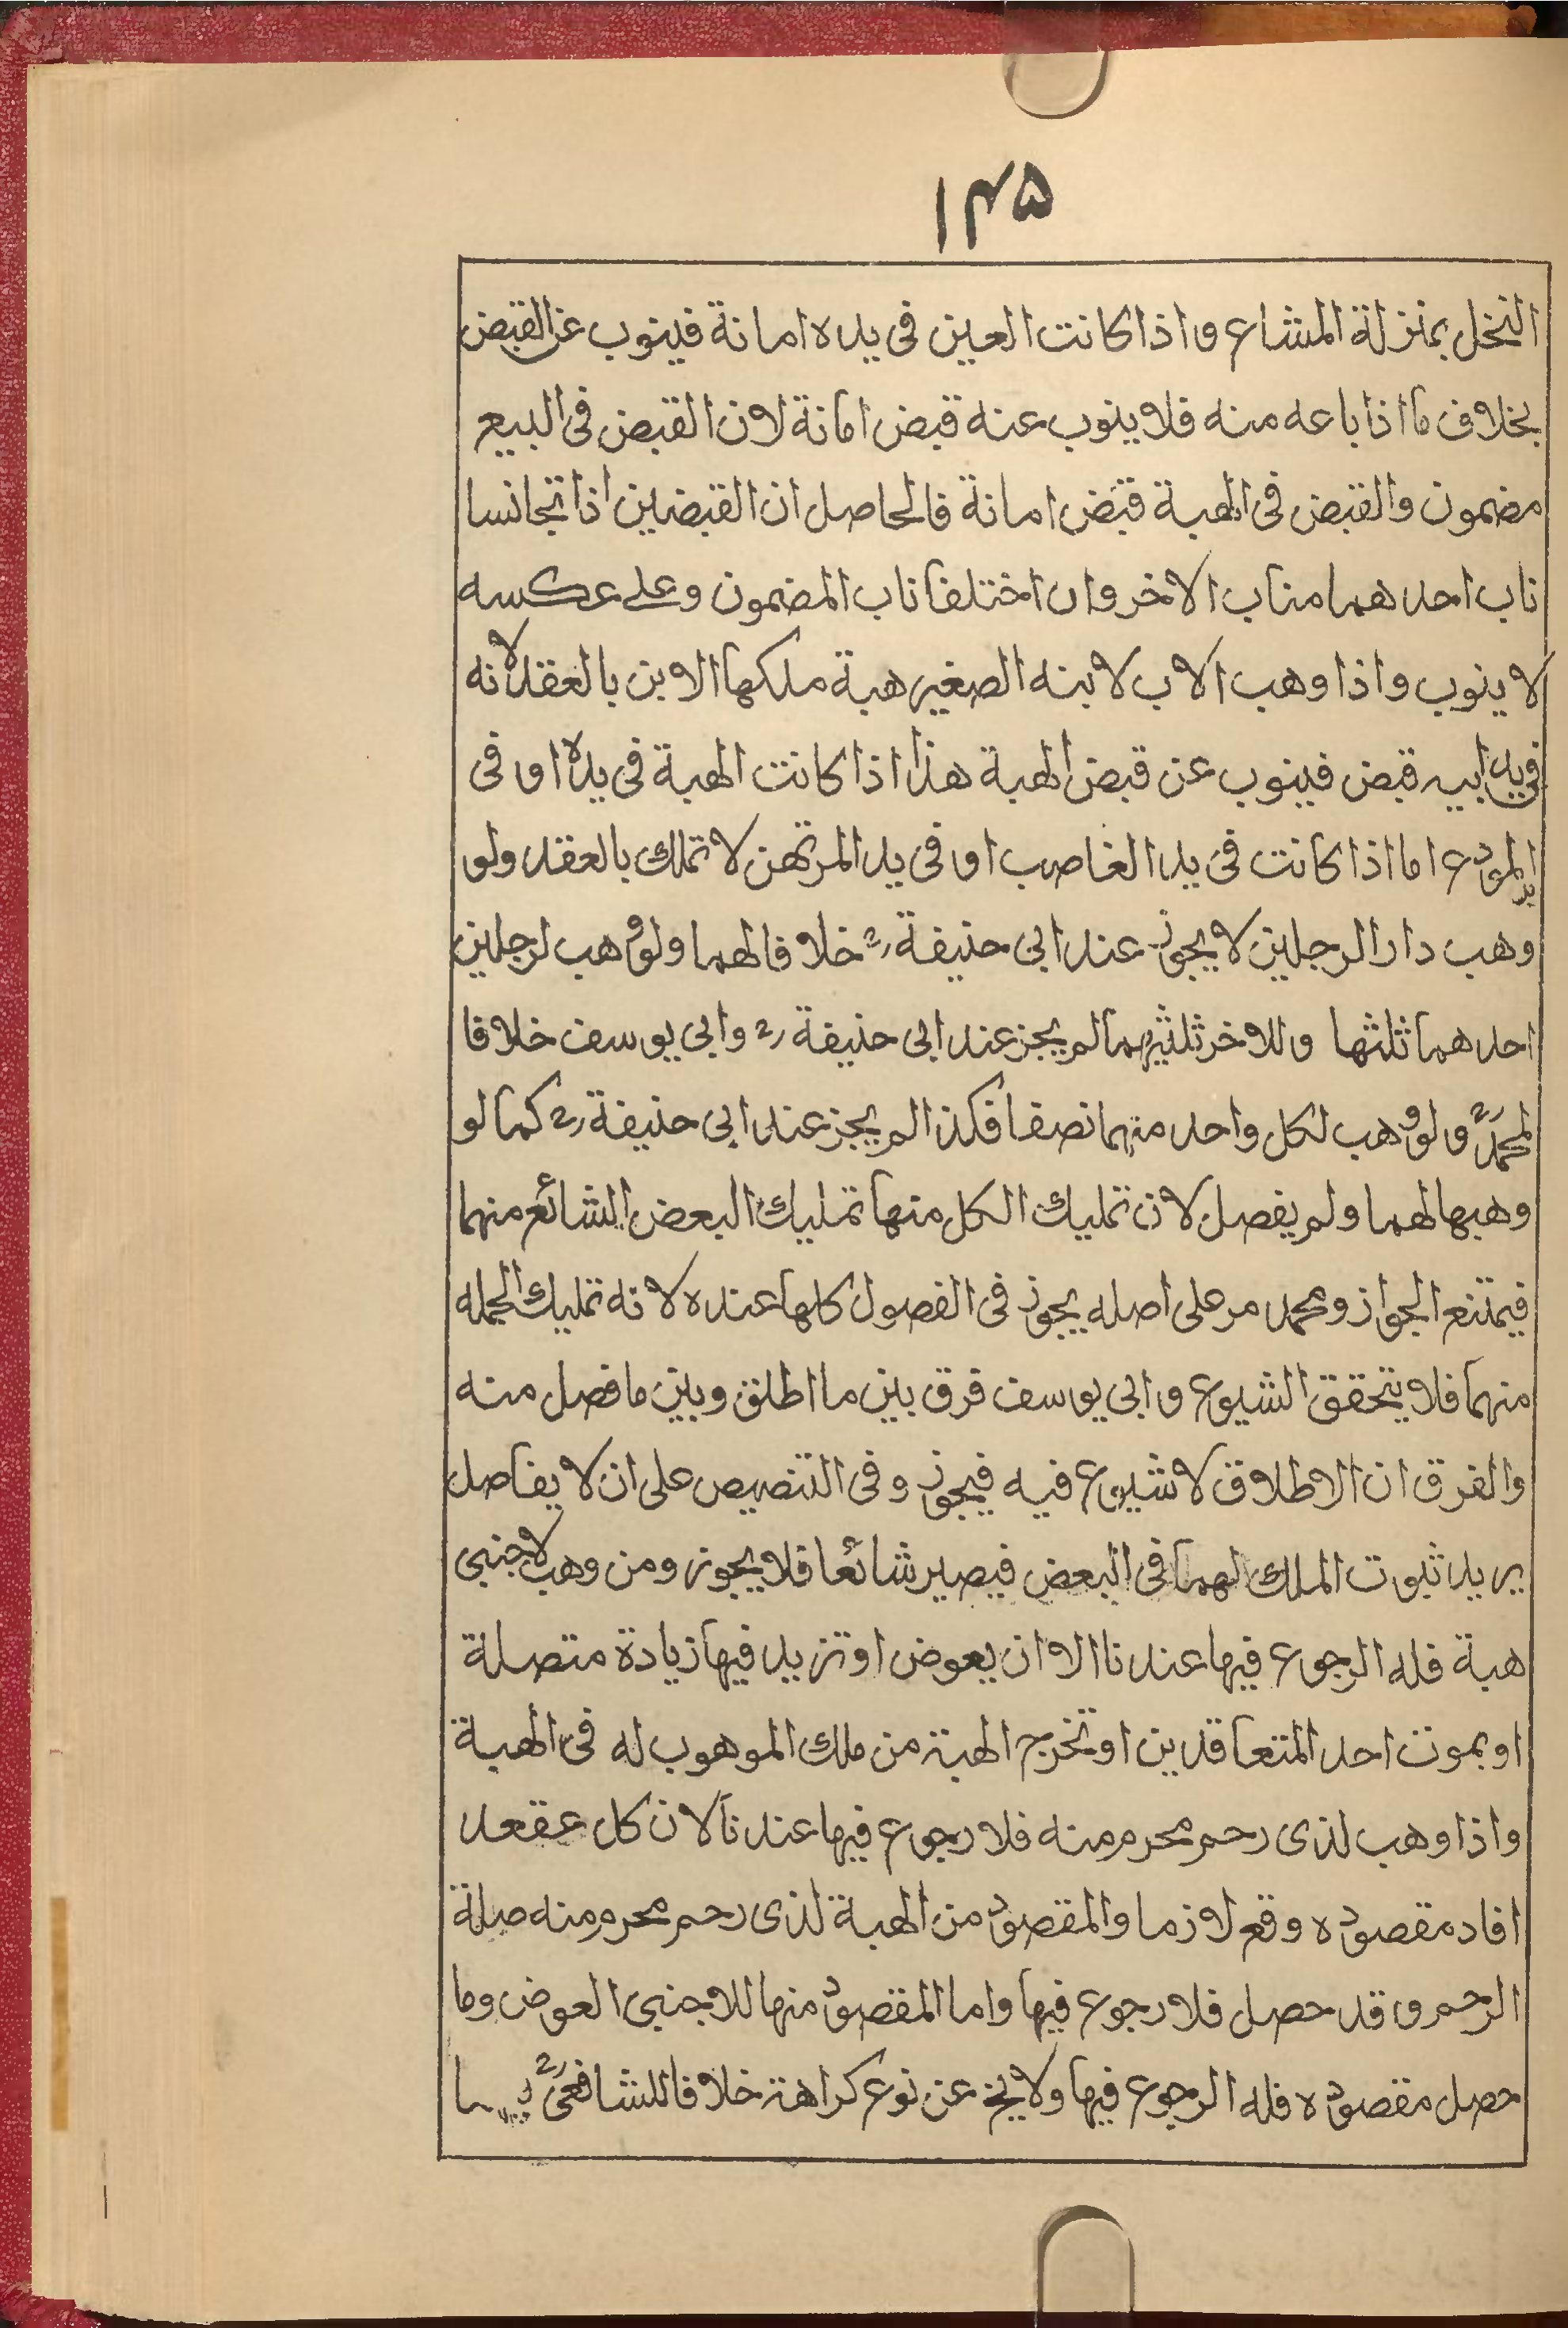 ۱۴۵
النخل بمنزلة المشاع واذا كانت العين فى يده امانة فينوب عن القبض
بخلاف ما اذا باعه منه فلا ينوب عنه قبض امانة لان القبض فى البيع
مضمون والقبض فى الهبة قبض امانة فالحاصل ان القبضين اذا تجانسا
ناب احدهما مناب الاخر وان اختلفا ناب المضمون وعلى عكسه
لا ينوب واذا وهب الاب لابنه الصغير هبة ملكها الابن بالعقد لانه
فى يد ابيه قبض فينوب عن قبض الهبة هذا اذا كانت الهبة فى يده او فى
يد المودع اما اذا كانت فى يد الغاصب او فى يد المرتهن لا تملك بالعقد ولو
وهب دارا لرجلين لا يجوز عند ابى حنيفة رح خلافا لهما ولو وهب لرجلين
احدهما ثلثها وللاخر ثلثيهما لم يجز عند ابى حنيفة رح وابى يوسف خلافا
لمحمد رح ولو وهب لكل واحد منهما نصفا فكذا لم يجز عند ابى حنيفة رح كما لو
وهبها لهما ولم يفصل لان تمليك الكل منها تمليك البعض الشائع منهما
فيمتنع الجواز ومحمد مر على اصله يجوز فى الفصول كلها عنده لانه تمليك الجمله
منهما فلا يتحقق الشيوع وابى يوسف فرق بين ما اطلق وبين ما فصل منه
والفرق ان الاطلاق لا شيوع فيه فيجوز وفى التنصيص على ان لا يفاصل
يريد ثبوت الملك لهما فى البعض فيصير شائعا فلا يجوز ومن وهب لاجنبى
هبة فله الرجوع فيها عندنا الا ان يعوض او تزيد فيها زيادة متصلة
او بموت احد المتعاقدين او تخرج الهبة من ملك الموهوب له فى الهبة
واذا وهب لذى رحم محرم منه فلا رجوع فيها عندنا لان كل عقعد
افاد مقصوده وقع لازما والمقصود من الهبة لذى رحم محرم منه صلة
الرحم وقد حصل فلا رجوع فيها واما المقصود منها للاجنبى العوض وما
حصل مقصوده فله الرجوع فيها ولا يخ عن نوع كراهة خلافا للشافعى رح